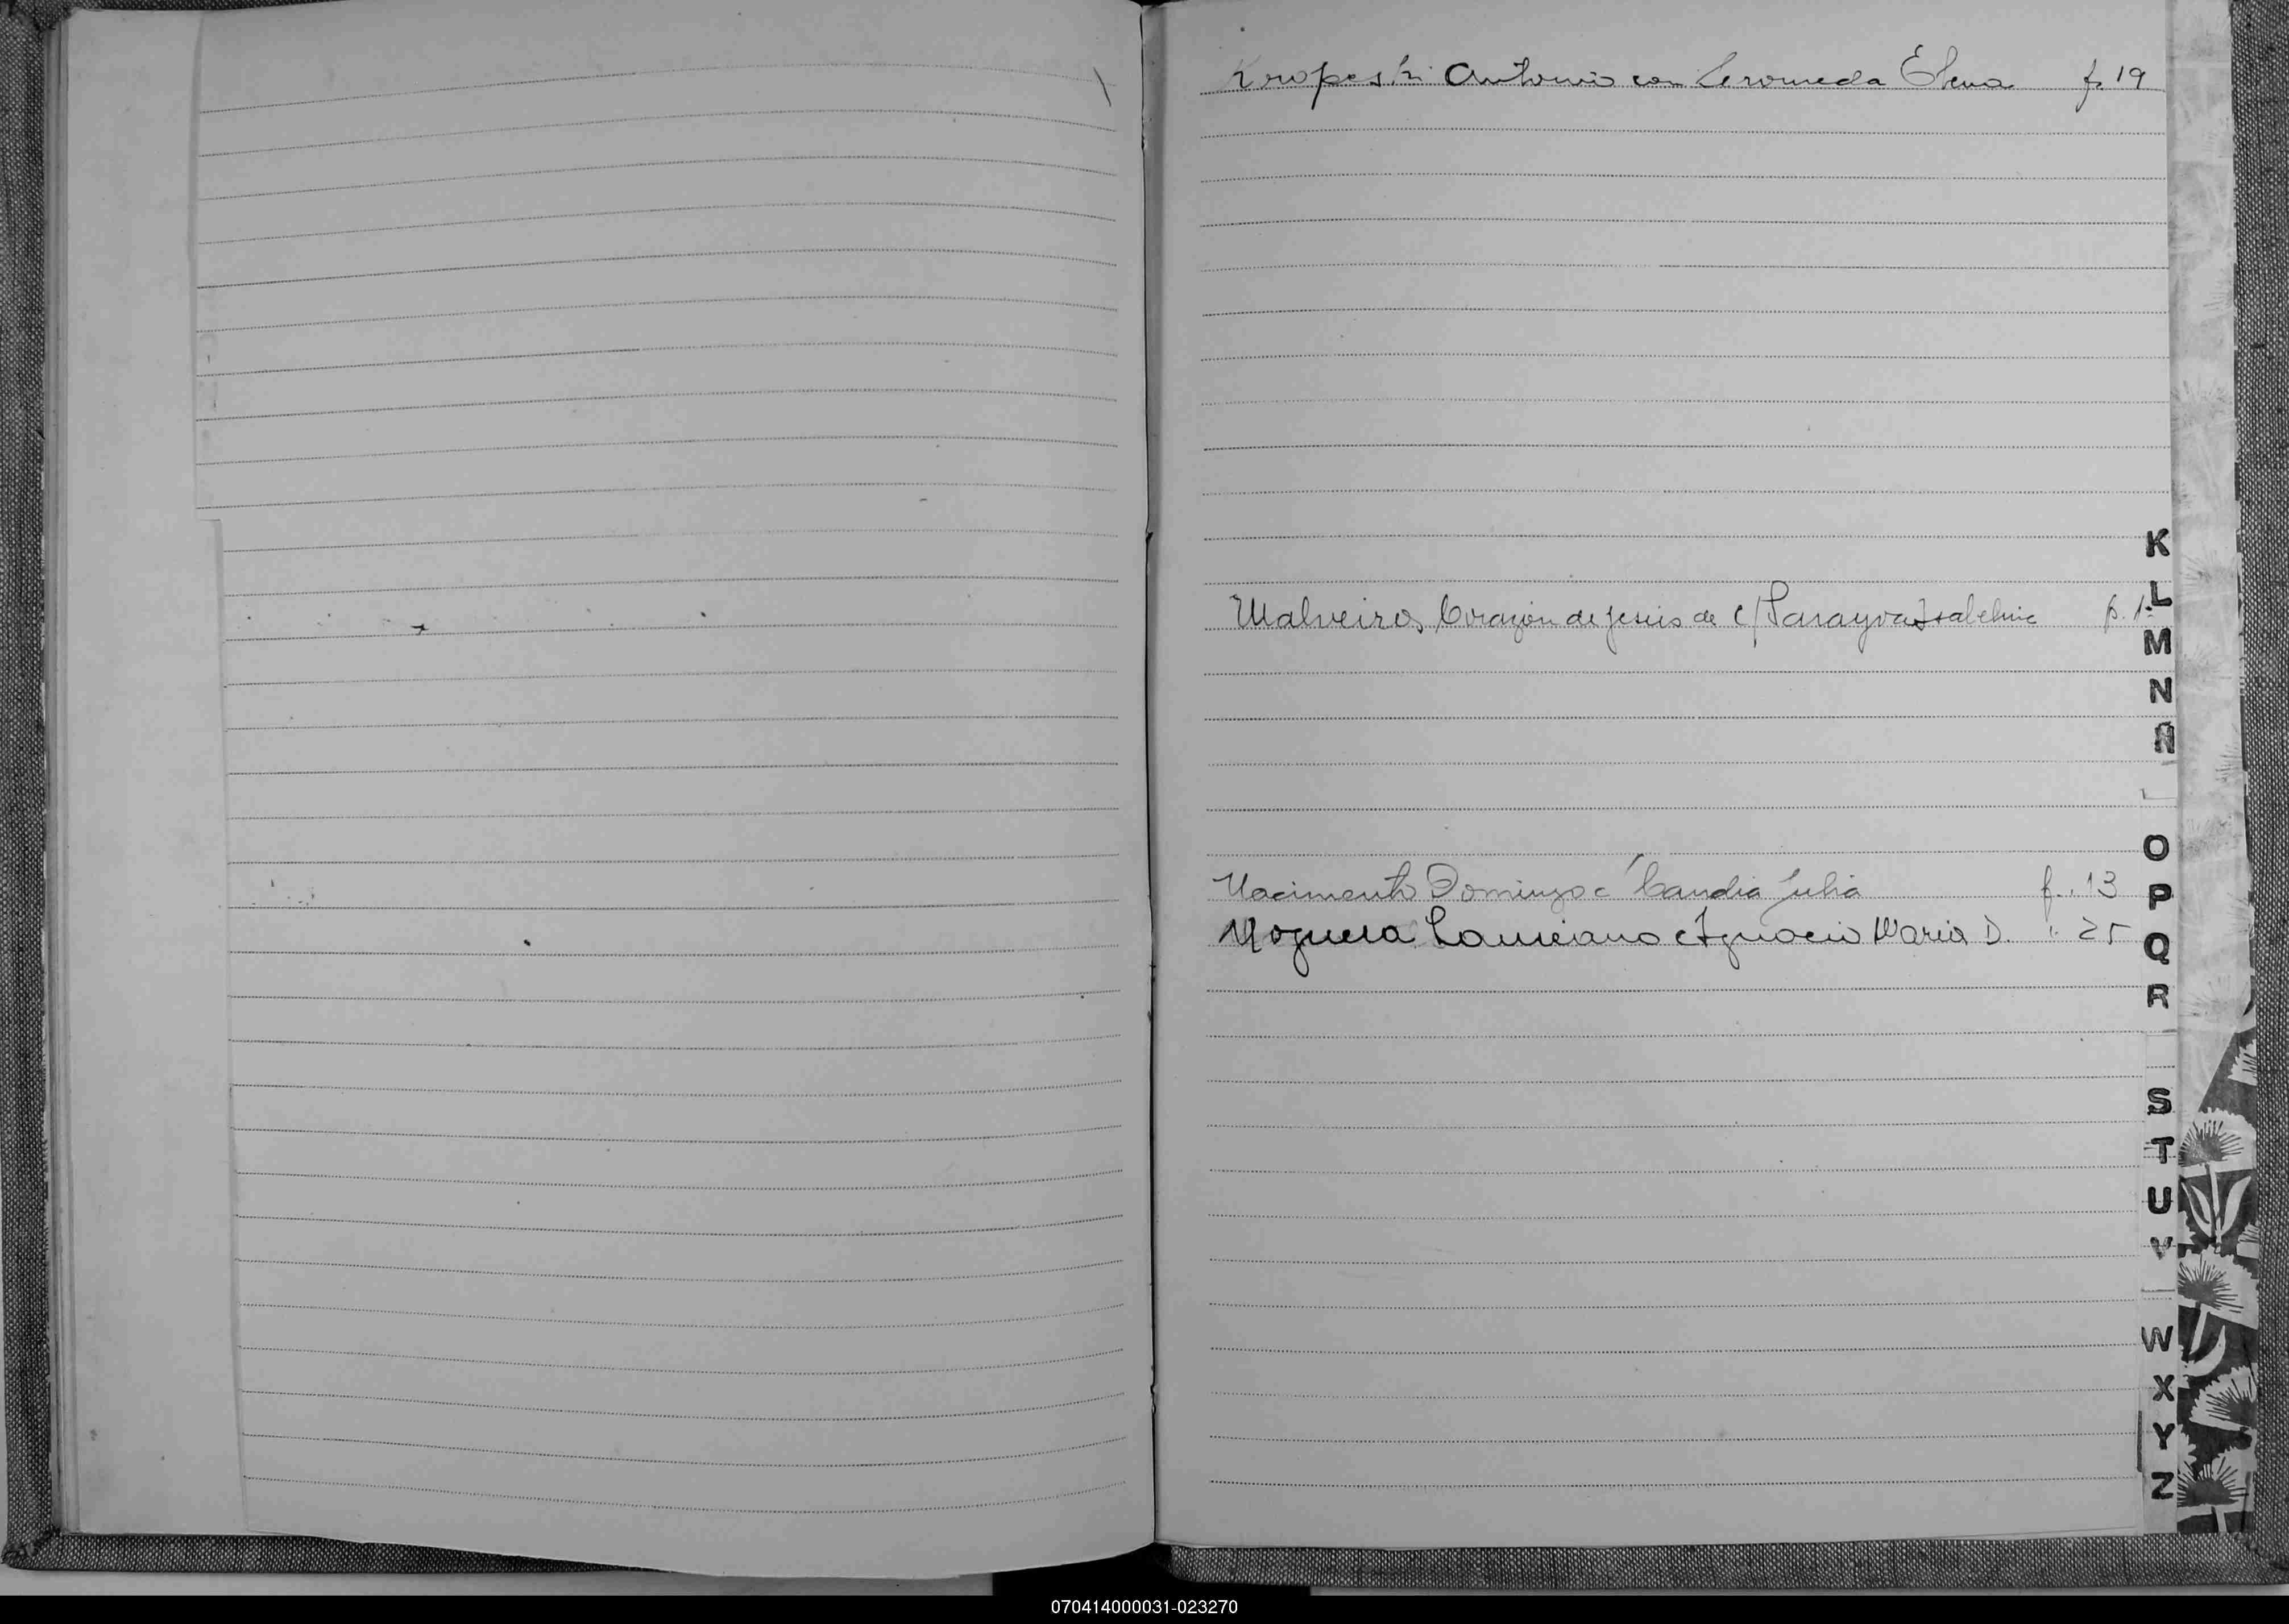 Antonio con Elena f. 19
Malveiros Corazón de Jesús de c/ Sarayva Isabelina f. 1
Nacimento Domingo c Candia Julia f. 13
Noguera Laureano c Ignacio Maria D. " 25
K
L
M
N
Ñ
O
P
Q
R
S
T
U
V
W
X
Y
Z
070414000031-023270